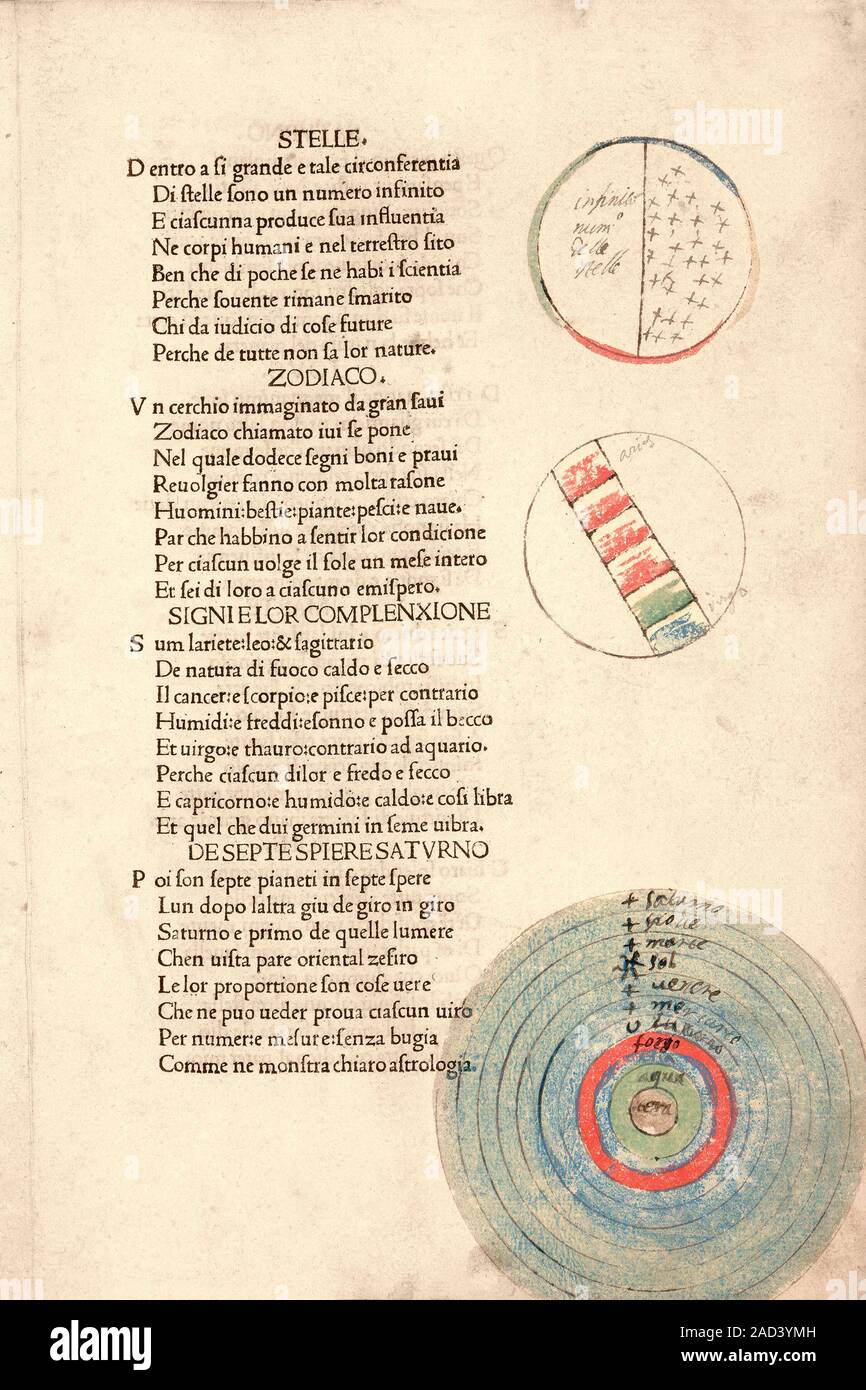 STELLE.
D entro a ſi grande e tale circonferentia
Di ſtelle ſono un numero infinito
E ciaſcunna produce ſua influentia
Ne corpi humani e nel terreſtro ſito
Ben che di poche ſe ne habi i ſcientia
Perche ſouente rimane ſmarito
Chi da iudicio di coſe future
Perche de tutte non ſa lor nature.
ZODIACO.
V n cerchio immaginato da gran ſaui
Zodiaco chiamato iui ſe pone
Nel quale dodece ſegni boni e praui
Reuolgier fanno con molta raſone
Huomini:beſtie:piante:peſci:e naue.
Par che habbino a ſentir lor condicione
Per ciaſcun uolge il ſole un meſe intero
Et ſei di loro a ciaſcuno emiſpero.
SIGNI E LOR COMPLENXIONE
S um lariete:leo:& ſagittario
De natura di fuoco caldo e ſecco
Il cancer:e ſcorpio:e piſce:per contrario
Humidi:e freddi:eſonno e poſſa il becco
Et uirgo:e thauro:contrario ad aquario.
Perche ciaſcun dilor e fredo e ſecco
E capricorno:e humido:e caldo:e coſi libra
Et quel che dui germini in ſeme uibra.
DE SEPTE SPIERE SATVRNO
P oi ſon ſepte pianeti in ſepte ſpere
Lun dopo laltra giu de giro in giro
Saturno e primo de quelle lumere
Chen uiſta pare oriental zefiro
Le lor proportione ſon coſe uere
Che ne puo ueder proua ciaſcun uiro
Per numer:e meſure:ſenza bugia
Comme ne monſtra chiaro aſtrologia.
infinito
num°
delle
stelle
aries
virgo
saturno
giove
marte
sol
venere
mercurio
fuogo
aqua
terra
alamy
Image ID: 2AD3YMH
www.alamy.com